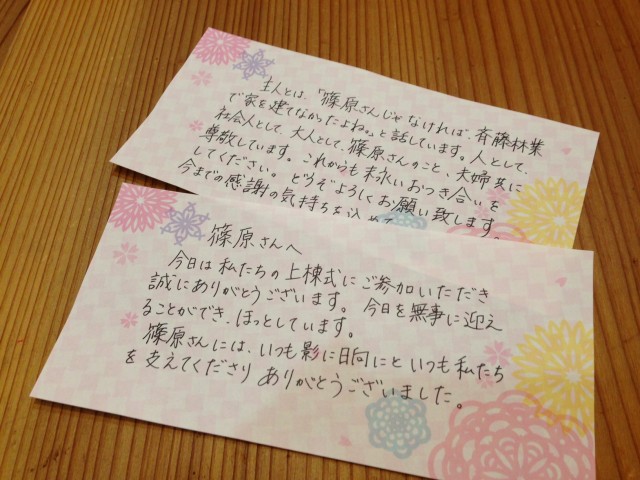 篠原さんへ
今日は私たちの上棟式にご参加いただき
誠にありがとうございます。今日を無事に迎え
ることができ、ほっとしています。
篠原さんには、いつも影に日向にといつも私たち
を支えてくださり ありがとうございました。
主人とは、「篠原さんじゃなければ、斉藤林業
で家を建てなかったよね。」と話しています。人として、
社会人として、大人として、篠原さんのこと、夫婦共に
尊敬しています。これからも末永いおつき合いを
してください。どうぞよろしくお願い致します。
今までの感謝の気持ちを込めて